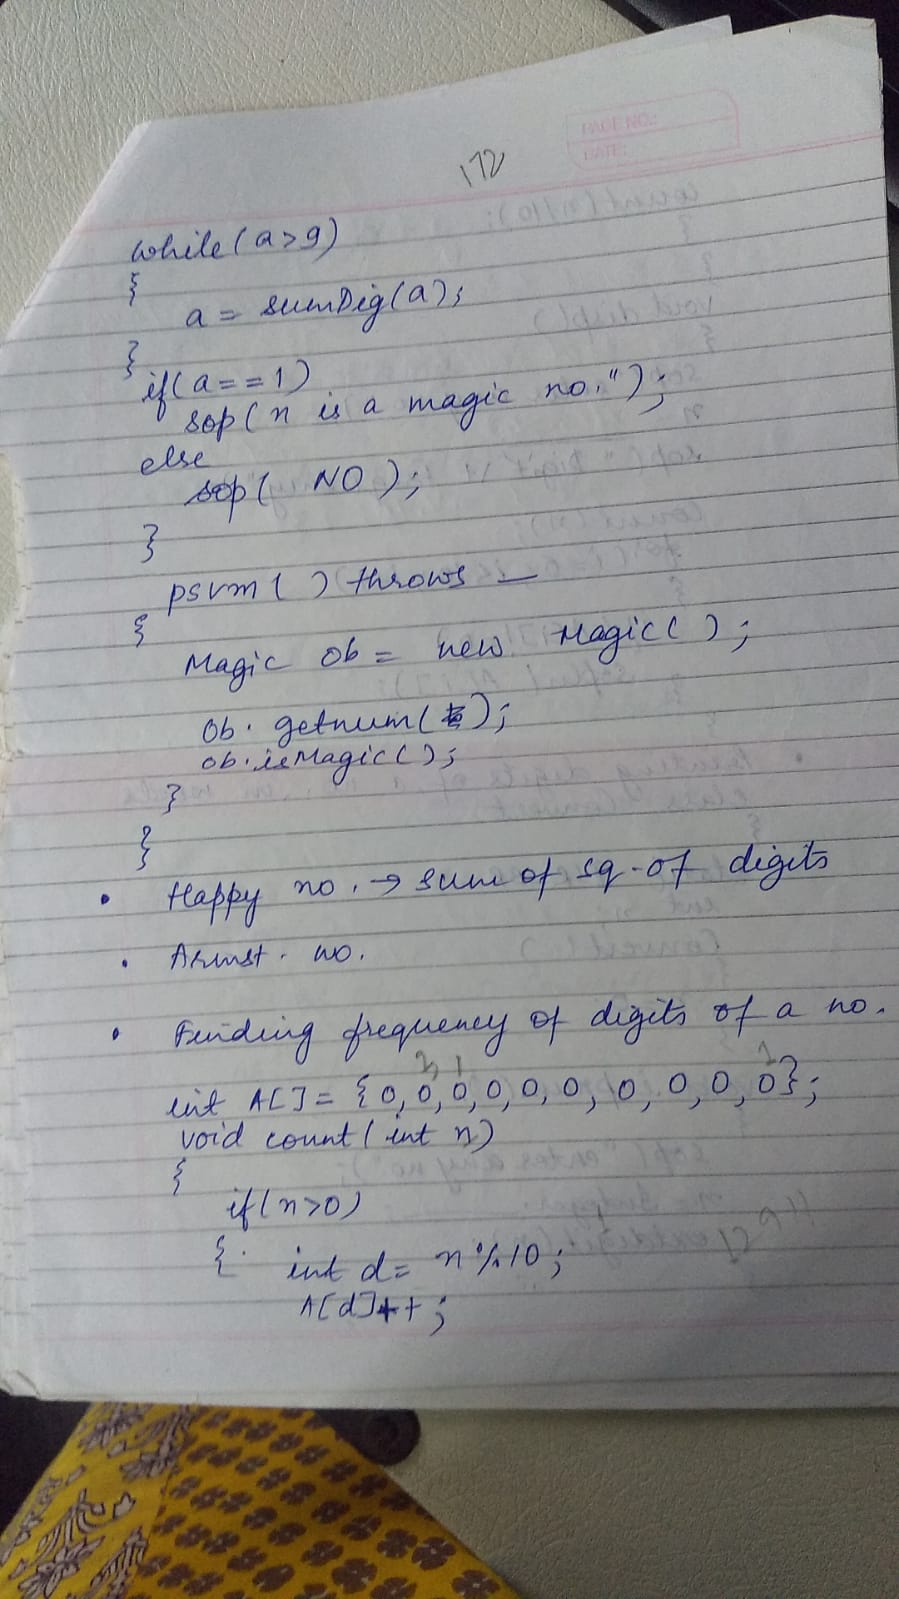 PAGE NO.:
DATE:
172
while(a>9)
{
a = sumDig(a);
}
if(a==1)
sop(n is a magic no.");
else
sop( NO );
}
psvm( ) throws —
{
Magic ob = new Magic( );
ob. getnum( );
ob.isMagic( );
}
}
• Happy no. → sum of sq. of digits
• Armst. no.
• Finding frequency of digits of a no.
2 1 1
int A[]= {0,0,0,0,0,0,0,0,0,0};
void count(int n)
{
if(n>0)
{ int d= n%10;
A[d]++;